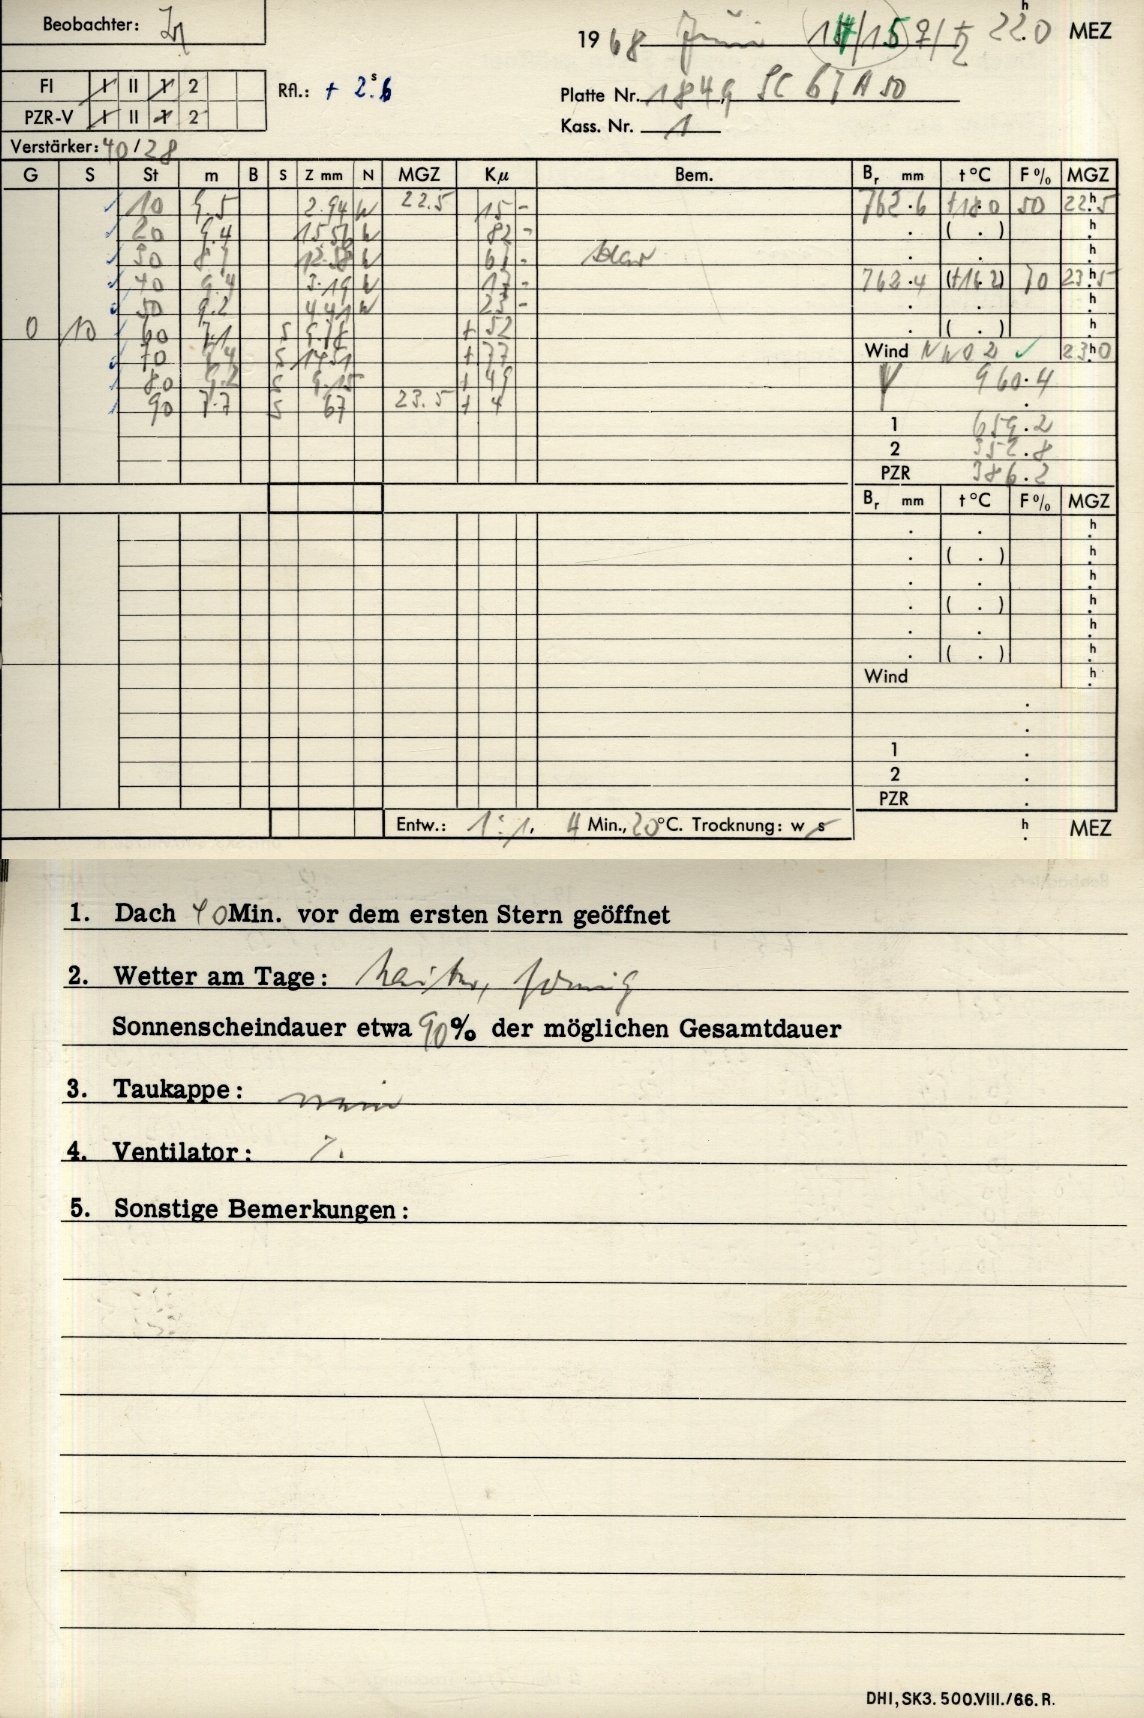 Beobachter:
1968 Juni 14/15 ♀/♄ 22h.0 MEZ
FI I II 1 2
Rfl.: + 2s.6
Platte Nr. 1849, SC 67 A 50
PZR-V I II 1 2
Kass. Nr. 1
Verstärker: 40/28
G S St m B S Z mm N MGZ Kμ Bem. Br mm t °C F% MGZ
10 9.5 2.94 W 22.5 15 - 762.6 +18.0 50 22h.5
20 9.4 15.56 W 82 - . ( . ) h.
30 8.7 12.58 W 67 - klar . . h.
40 9.4 3.19 W 17 - 762.4 (+16.2) 70 23h.5
50 9.2 4.41 W 23 - . . h.
0 10 60 7.1 S 9.78 + 52 . ( . ) h.
70 9.4 S 14.51 + 77 Wind NW 02 23h0
80 9.2 S 9.15 + 49 960.4
90 7.7 S 67 23.5 + 4
1 659.2
2 352.8
PZR 386.2
Br mm t °C F% MGZ
. . h.
. ( . ) h.
. . h.
. ( . ) h.
. . h.
. ( . ) h.
Wind h.
.
.
1 .
2 .
PZR .
Entw.: 1:1, 4 Min., 20°C. Trocknung: w s h. MEZ
1. Dach 40 Min. vor dem ersten Stern geöffnet
2. Wetter am Tage: heiter, sonnig
Sonnenscheindauer etwa 90% der möglichen Gesamtdauer
3. Taukappe: nein
4. Ventilator: /.
5. Sonstige Bemerkungen:
DHI, SK3. 500.VIII./66. R.